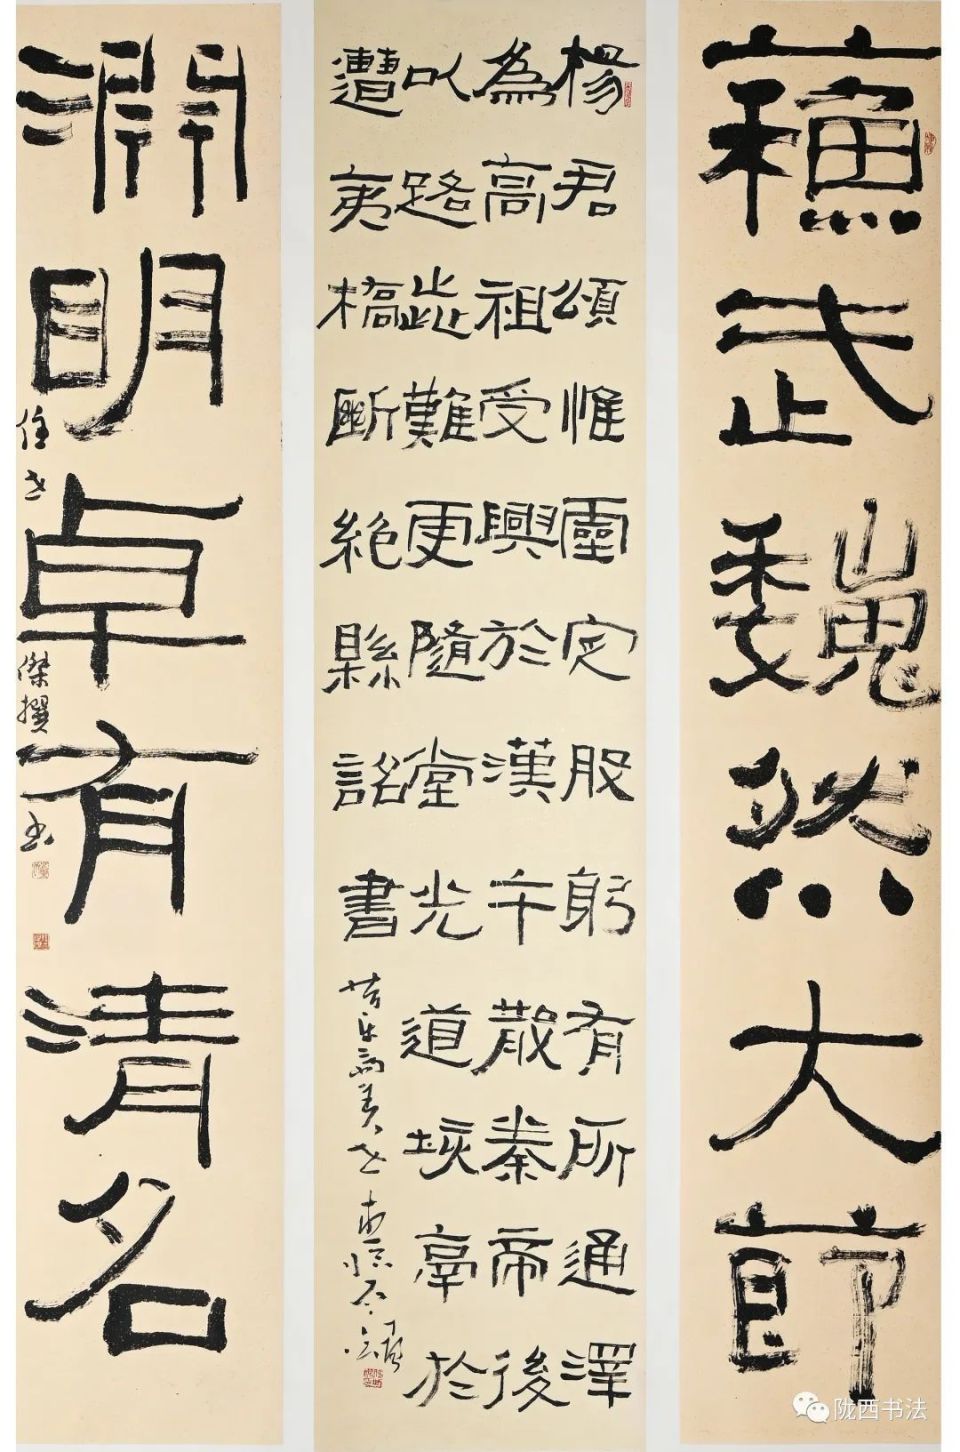 蘇武巍然大節
楊君頌惟靈定股躬有所通澤
為高祖受興於漢午散秦帝後
以路歰難更隨堂光道垓於
遭夷橋斷絕縣詔書
淵明卓有清名
任世傑撰書
陇西书法